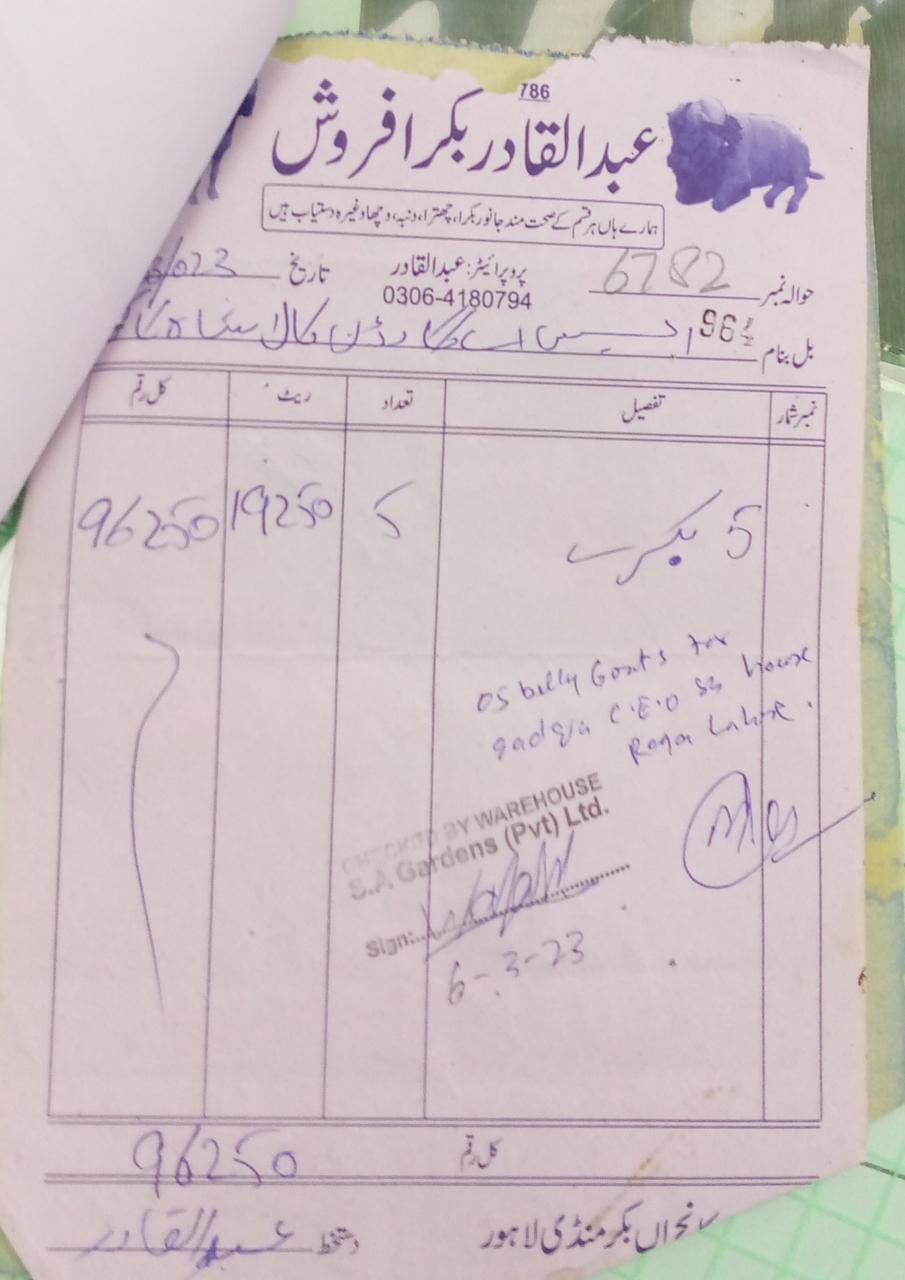 786
عبدالقادر بکرا فروش
ہمارے ہاں ہر قسم کے صحت مند جانور بکرا، چھترا، دنبہ، وچھا وغیرہ دستیاب ہیں
حوالہ نمبر 6782
پروپرائیٹر: عبدالقادر
0306-4180794
تاریخ /023
بل بنام ایس اے گارڈن کالا شاہ کاکو
نمبر شمار تفصیل تعداد ریٹ کل رقم
5 بکرے 5 19250 96250
05 billy Goats for
sadqa C.E.O SB house
Lahore.
CHECKED BY WAREHOUSE
S.A Gardens (Pvt) Ltd.
Sign:
6-3-23
کل رقم 96250
بکر منڈی لاہور
دستخط عبدالقادر